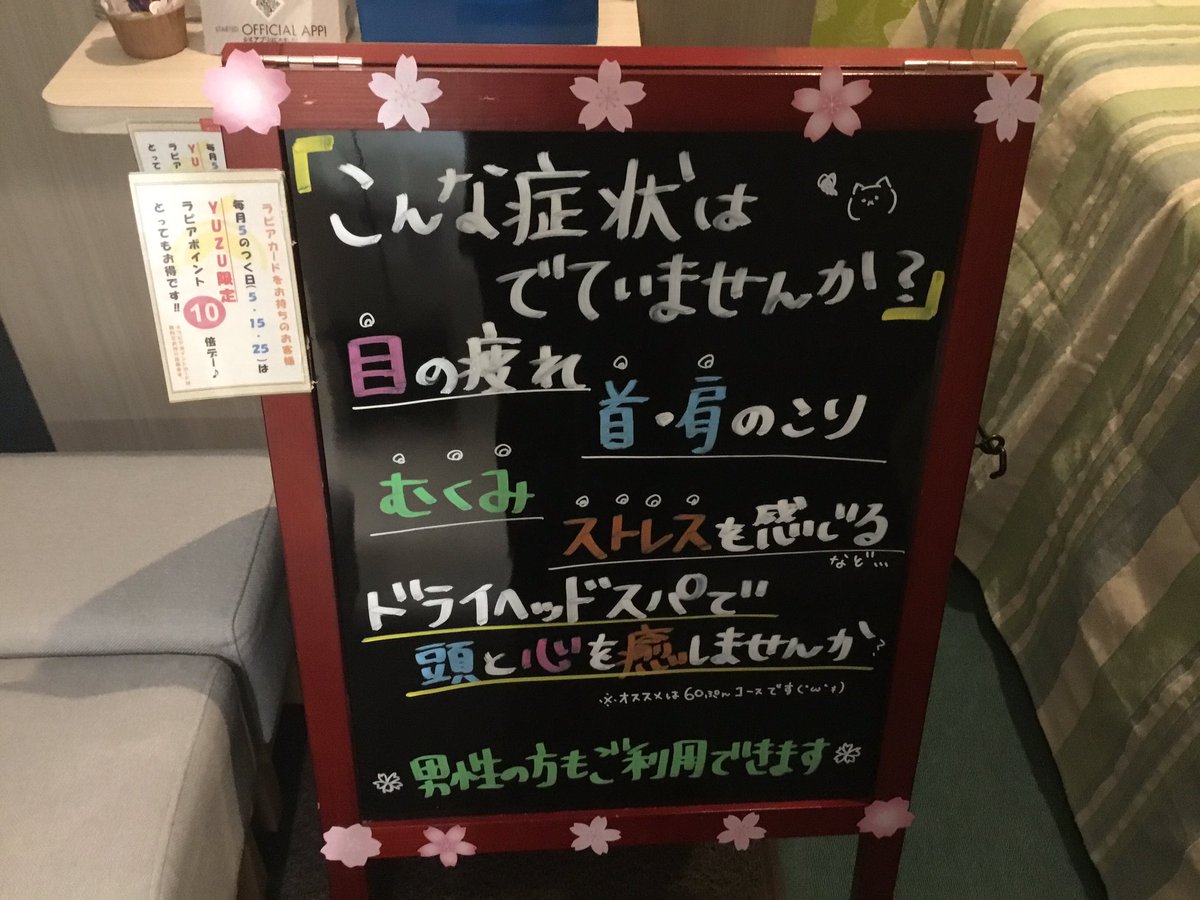 OFFICIAL APP!
毎月5
YU
ラピ
とって
ラピアカードをお持ちのお客様
毎月5のつく日(5・15・25)は
YUZU限定
ラピアポイント10倍デー♪
とってもお得です!!
「こんな症状は
でていませんか?」
目の疲れ
首・肩のこり
むくみ
ストレスを感じる
など…
ドライヘッドスパで
頭と心を癒しませんか?
※オススメは60ぷんコースです(・ω・)
男性の方もご利用できます